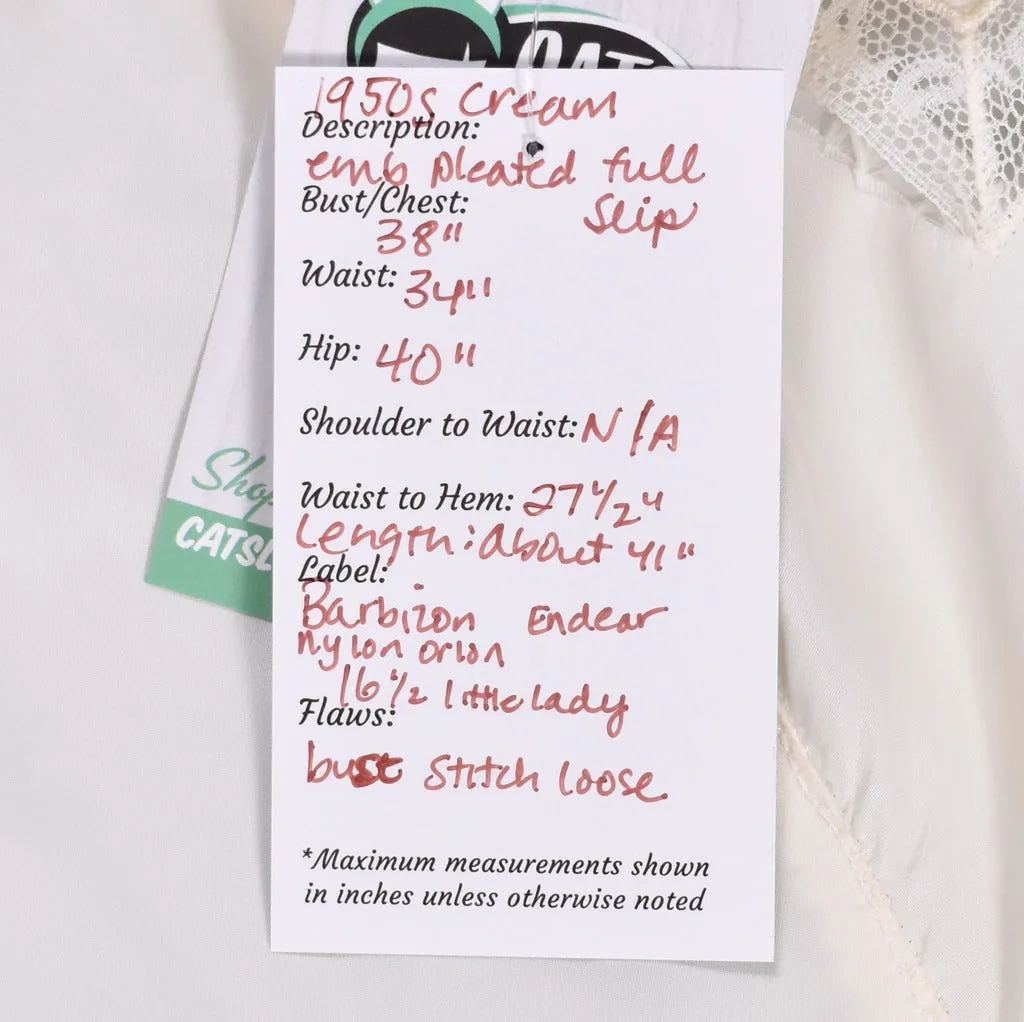 CATS
1950s Cream
Description:
emb pleated full
Bust/Chest:
Slip
38"
Waist: 34"
Hip: 40"
Shoulder to Waist: N/A
Waist to Hem: 27 1/2"
Length: About 41"
Label:
Barbizon Endear
nylon orlon
16 1/2 little lady
Flaws:
bust stitch loose
*Maximum measurements shown
in inches unless otherwise noted
Shop
CATSL